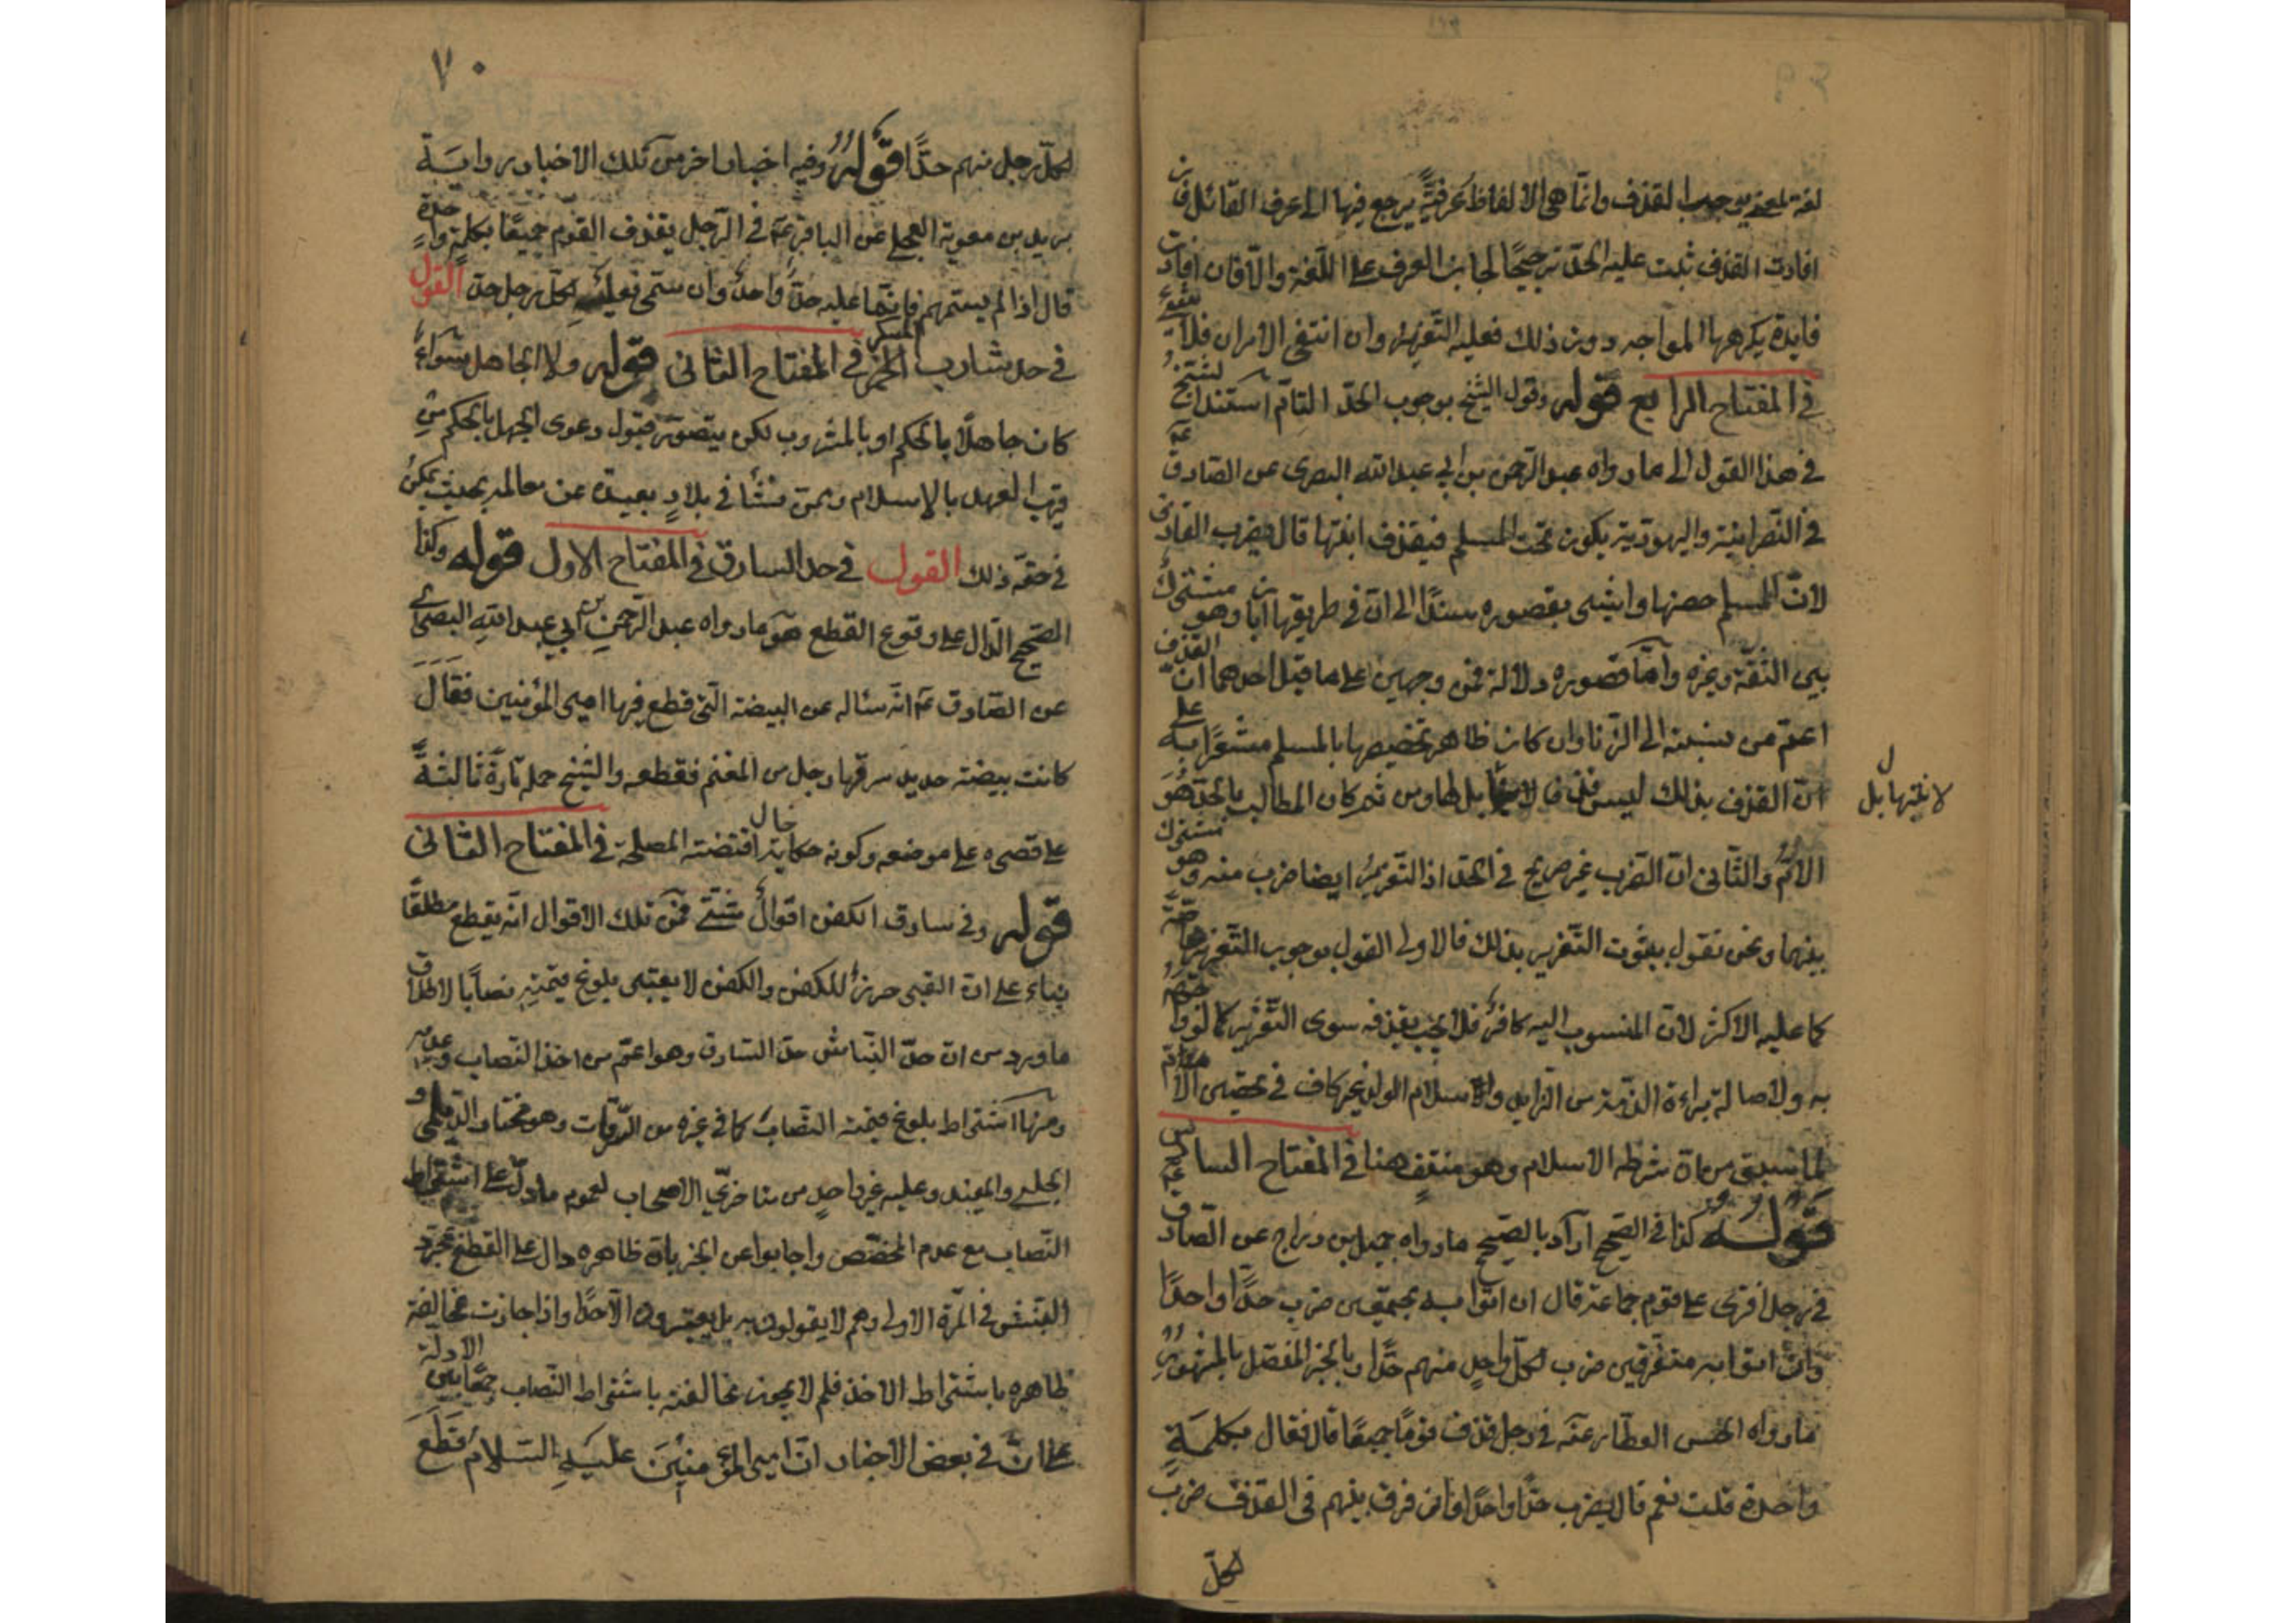 لغة لمعنى يوجب القذف وانما هى الالفاظ عرفية يرجع فيها الى عرف القائل فان
افادت القذف ثبت عليه الحد ترجيحا لجانب العرف على اللغة والا فان افادت
فايدة يكرهها المواجه دون ذلك فعليه التعزير وان انتفى الامران فلا شىء
في المفتاح الرابع قوله وقول الشيخ بوجوب الحد التام استند الشيخ
في هذا القول الى ما رواه عبد الرحمن بن ابي عبد الله البصرى عن الصادق عم
في النصرانية واليهودية يكون تحت المسلم فيقذف ابنها قال يضرب القاذف
لان المسلم حصنها واشير بقصوره سندا الى ان في طريقها ابان وهو مشترك
بين الثقة وغيره واما قصوره دلالة فمن وجهين على ما قيل احدهما ان القذف
اعم من نسبته الى الزنا وان كان ظاهر تخصيصها بالمسلم مشعرا به على
ان القذف بذلك ليس قذفا لابنها بل لها ومن ثم كان المطالب بالحد هو
لا لابنها بل
الام والثانى ان الضرب غير صريح في الحد اذ التعزير ايضا ضرب منه وهو مشترك
بينهما ونحن نقول بثبوت التعزير بذلك فالاولى القول بوجوب التعزير خاصة
كما عليه الاكثر لان المنسوب اليه كافر فلا يجب بقذفه سوى التعزير كما لو
به ولاصالة براءة الذمة من الزايد والاسلام الولد غير كاف في تحصين الام
لما سبق من ان شرطه الاسلام وهو منتف هنا في المفتاح السادس
قوله كذا في الصحيح اراد بالصحيح ما رواه جميل بن دراج عن الصادق عم
في رجل افترى على قوم جماعة قال ان اتوا به مجتمعين ضرب حدا واحدا
وان اتوا به متفرقين ضرب لكل واحد منهم حدا وبالخبر المفصل بالمشهور
ما رواه الحسن العطار عنه في رجل قذف قوما جميعا قال فقال بكلمة
واحدة قلت نعم قال يضرب حدا واحدا وان فرق بينهم فى القذف ضرب
لكل
٧٠
لكل رجل منهم حدا قوله وفيه اخبار اخر من تلك الاخبار رواية
بريد بن معوية العجلى عن الباقر عم في الرجل يقذف القوم جميعا بكلمة واحدة
قال اذا لم يسمهم فانما عليه حد واحد وان سمى فعليه لكل رجل حد القول
في حد شارب الخمر المسكر في المفتاح الثانى قوله ولا الجاهل سواء
كان جاهلا بالحكم او بالمشروب لكن يتصور قبول دعوى الجهل بالحكم من
قريب العهد بالاسلام وممن نشأ في بلاد بعيدة عن معالمه بحيث يمكن
في حقه ذلك القول في حد السارق في المفتاح الاول قوله وكذا
الصحيح الدال على وقوع القطع هو ما رواه عبد الرحمن بن ابي عبد الله البصرى
عن الصادق عم انه سئاله عن البيضة التى قطع فيها امير المؤمنين فقال
كانت بيضة حديد سرقها رجل من المغنم فقطعه والشيخ حمله تارة ثالثة
على قصره على موضعه وكونه حكاية حال اقتضته المصلحة في المفتاح الثانى
قوله وفي سارق الكفن اقوال شتى فمن تلك الاقوال انه يقطع مطلقا
بناء على ان القبر حرز للكفن والكفن لا يعتبر بلوغ قيمته نصابا لاطلاق
ما ورد من ان حد النباش حد السارق وهو اعم من اخذ النصاب وعدمه
ومنها اشتراط بلوغ قيمته النصاب كما في غيره من السرقات وهو مختار الديلمى و
الحلبى والمفيد وعليه غير واحد من متاخري الاصحاب لعموم ما دل على اشتراط
النصاب مع عدم المخصص واجابوا عن الخبر بان ظاهره دال على القطع بمجرد
النبش في المرة الاولى وهم لا يقولون به بل يعتبرون الاخذ واذا جازت مخالفة
ظاهره باشتراط الاخذ فلم لا يجوز مخالفته باشتراط النصاب جمعا بين الادلة
على ان في بعض الاخبار ان امير المؤمنين عليه السلام قطع